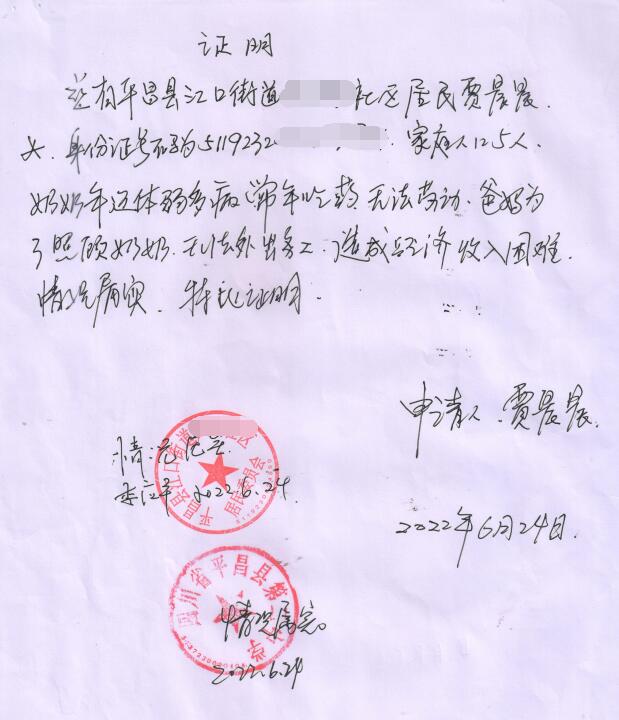 证明
兹有平昌县江口街道 社区居民贾晨晨.
女.身份证号码为5119232 .家庭人口5人.
奶奶年迈体弱多病(常年吃药,无法劳动.爸妈为
了照顾奶奶.无法外出务工.造成经济收入困难.
情况属实.特此证明.
申请人:贾晨晨.
情况属实.
2022.6.24
平昌县江口街道
居民委员会
2022年6月24日.
四川省平昌县第 中学
情况属实。
2022.6.24